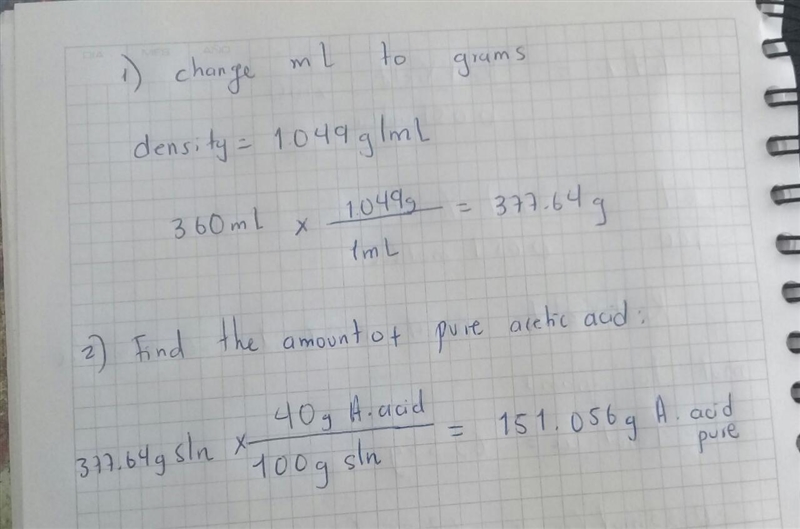 1) change ml to grams
density = 1.049 g/mL
360 mL x 1.049g / 1mL = 377.64 g
2) Find the amount of pure acetic acid:
377.64 g sln x 40g A. acid / 100g sln = 151.056 g A. acid pure